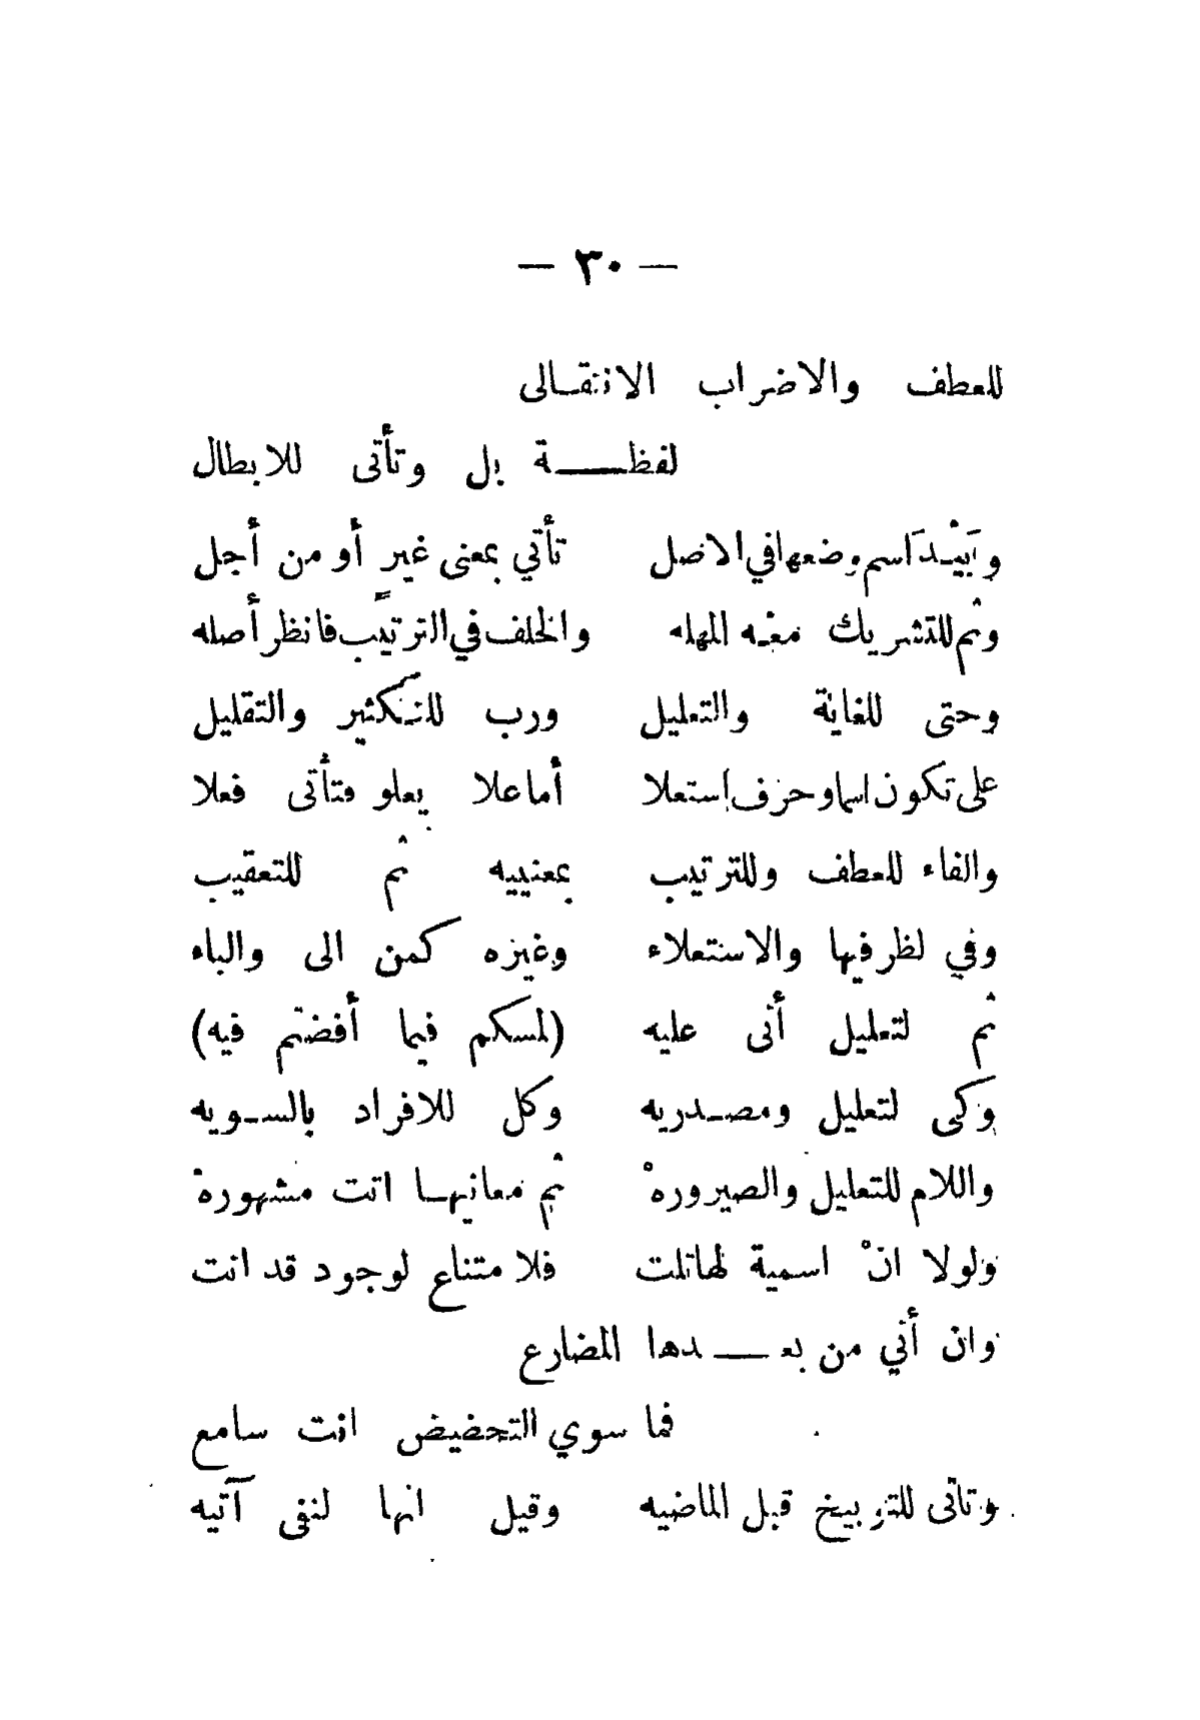 — ٣٠ —
للعطف والاضراب الانتقالى
لفظة بل وتأتى للابطال
وبَيْدَ اسم وضعها في الاصل تأتي بمعنى غيرٍ أو من أجل
وثم للتشريك معْه المهله والخلف في الترتيب فانظر أصله
وحتى للغاية والتعليل ورب للتكثير والتقليل
على تكون اسما وحرف استعلا أما علا يعلو فتأتى فعلا
والفاء للعطف وللترتيب بمعنييه ثم للتعقيب
وفي لظرفيها والاستعلاء وغيره كمن الى والباء
ثم لتعليل أنى عليه (لمسكم فيما أفضتم فيه)
وكى لتعليل ومصدريه وكل للافراد بالسويه
واللام للتعليل والصيرورهْ ثم معانيها اتت مشهورهْ
ولولا انْ اسمية لها تلت فلامتناع لوجود قد انت
وان أتي من بعدها المضارع
فما سوي التحضيض انت سامع
وتاتى للتوبيخ قبل الماضيه وقيل انها لنفى آتيه